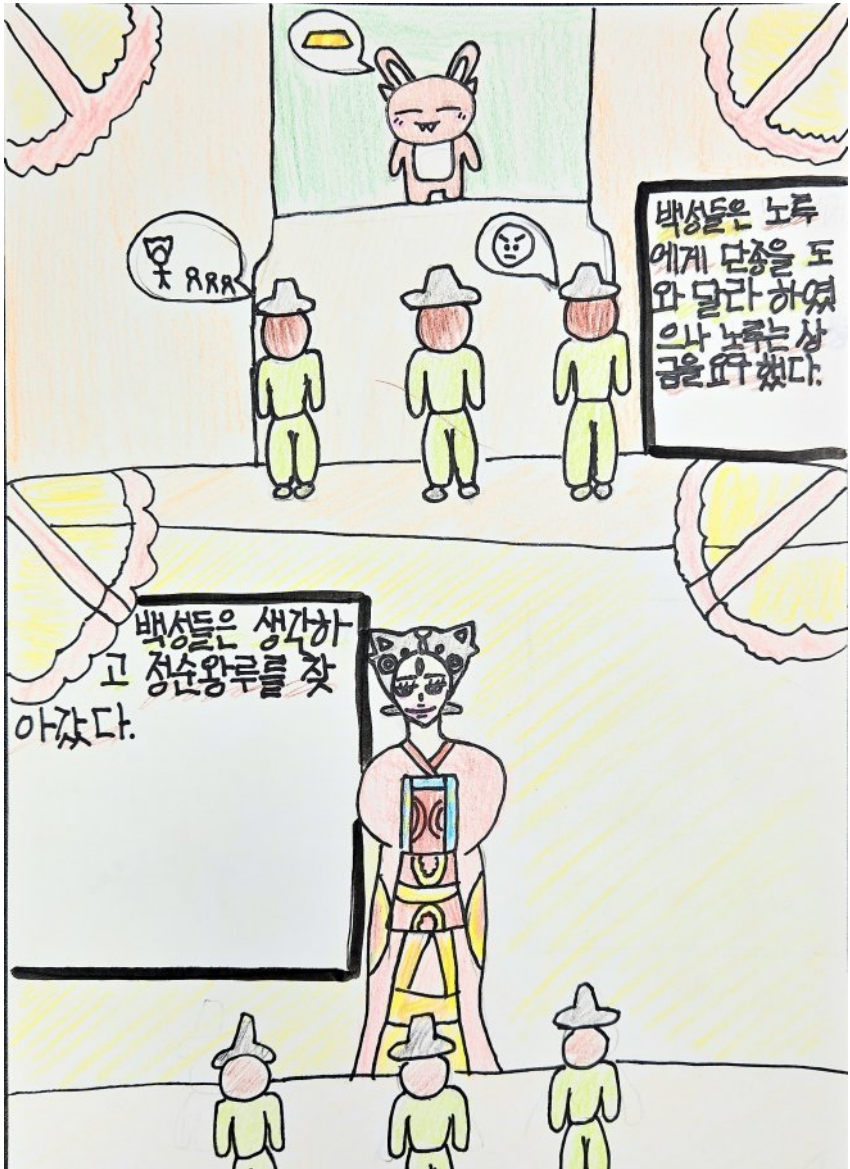 백성들은 노루
에게 단종을 도
와 달라 하였
으나 노루는 상
금을 요구 했다.
백성들은 생각하
고 정순왕루를 찾
아갔다.